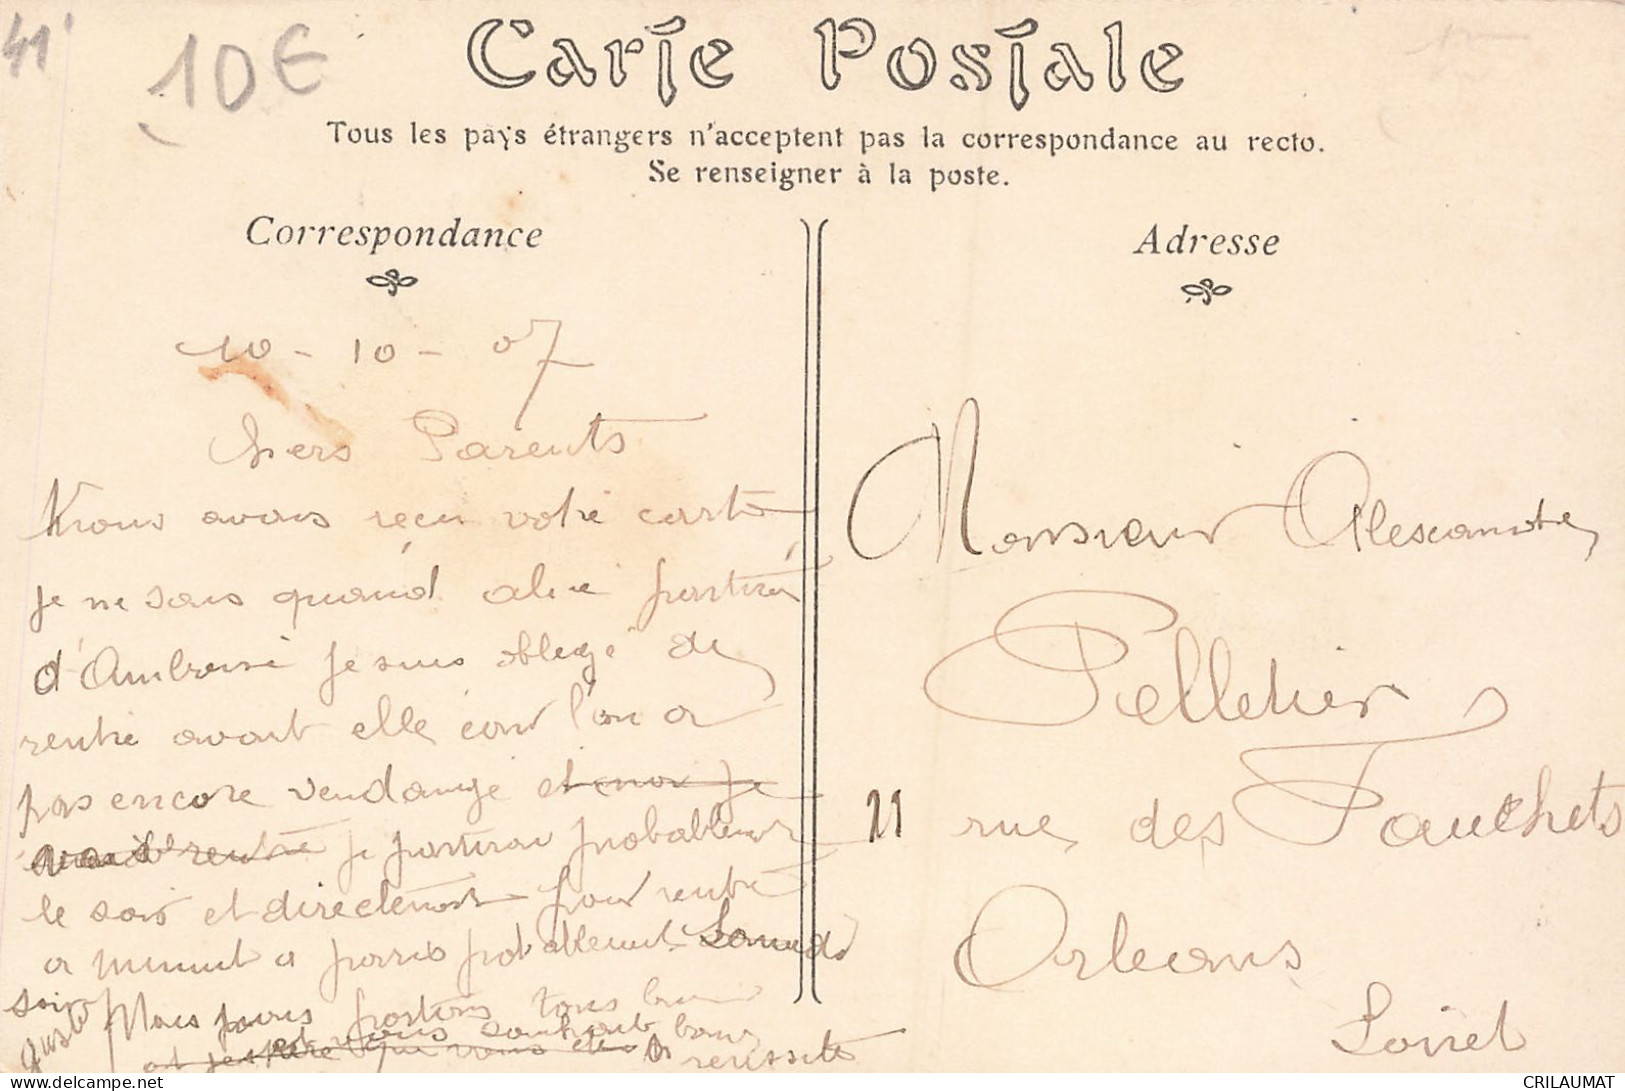 41
10€
Carte Postale
Tous les pays étrangers n'acceptent pas la correspondance au recto.
Se renseigner à la poste.
Correspondance
10 - 10 - 07
Chers Parents
Nous avons reçu votre carte
je ne sais quand aliné partira
d'Amboise je suis obligé de
rentré avant elle car l'on a
pas encore vendangé et non je
rentré je partirai probablement
le soir et directement pour rentré
a minuit a paris probablement Samedi
soir Nous partons tous
et vous souhait bonne
Guste réussite
Adresse
Monsieur Alexandre
Pelletier
11 rue des Fauchets
Orleans
Loiret
delcampe.net
CRILAUMAT